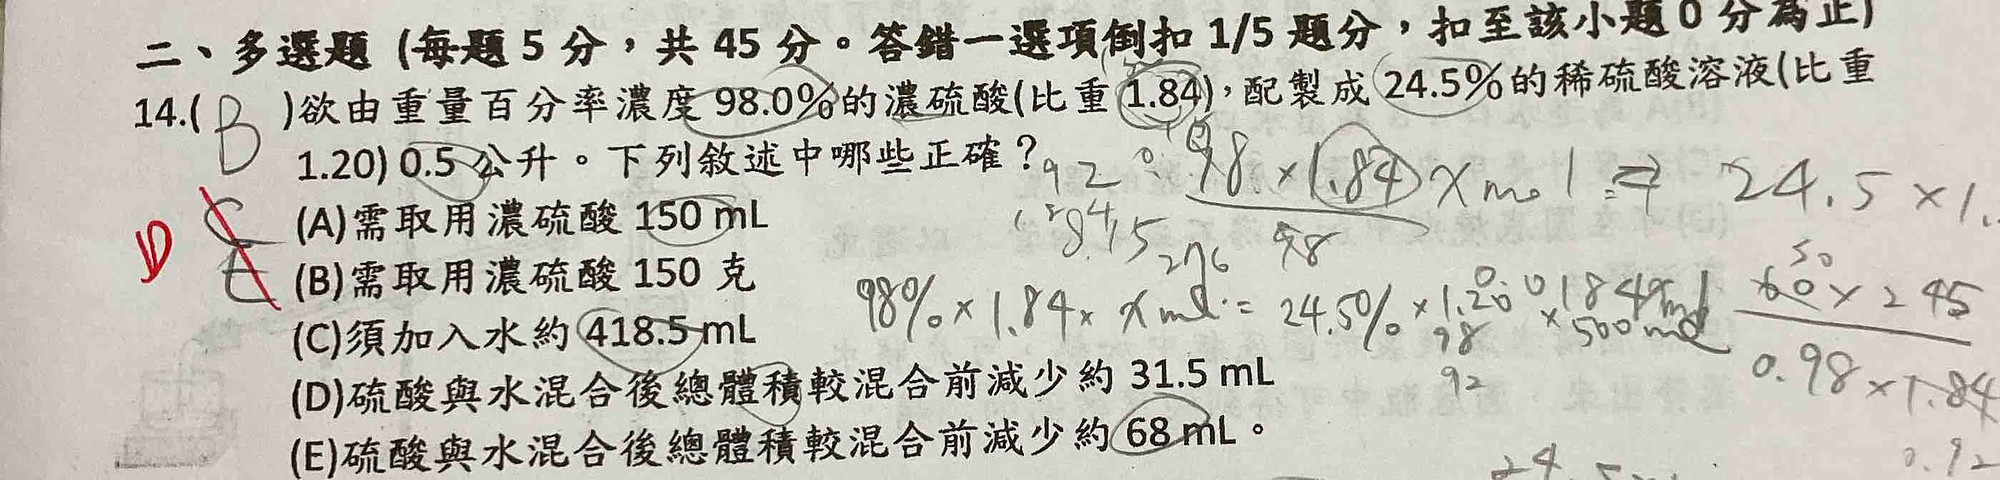 二、多選題 (每題 5 分，共 45 分。答錯一選項倒扣 1/5 題分，扣至該小題 0 分為止)
14.( B )欲由重量百分率濃度 98.0%的濃硫酸(比重 1.84)，配製成 24.5%的稀硫酸溶液(比重
1.20) 0.5 公升。下列敘述中哪些正確？
98 × 1.84 x mol
24.5 × 1.
98
(A)需取用濃硫酸 150 mL
D
C
E
(B)需取用濃硫酸 150 克
276
98% × 1.84 × x ml = 24.5% × 1.20 × 500 ml
60 × 245
50
0.98 × 1.84
98
92
(C)須加入水約 418.5 mL
(D)硫酸與水混合後總體積較混合前減少約 31.5 mL
(E)硫酸與水混合後總體積較混合前減少約 68 mL。
0.92